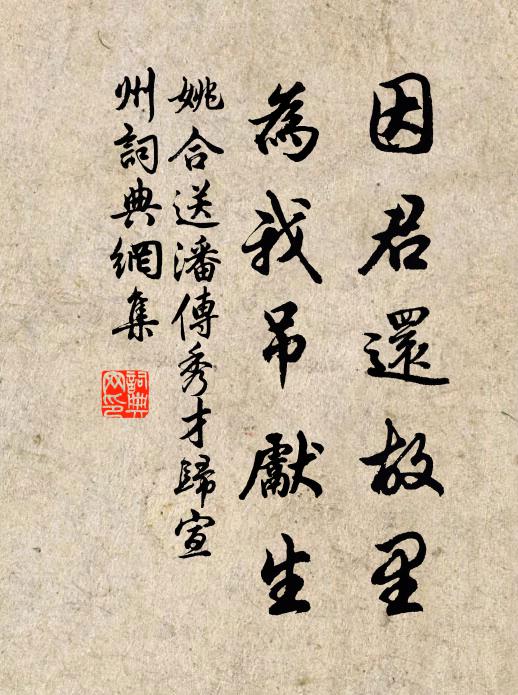 因君還故里
為我吊獻生
姚合送潘傳秀才歸宣
州詞典網集
詞典
网印